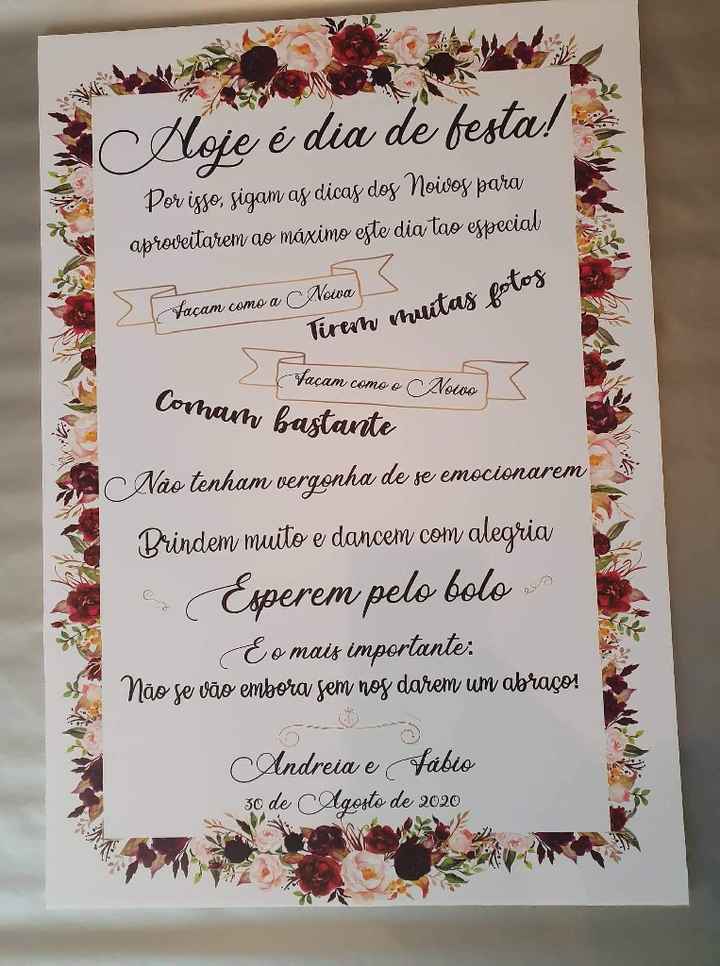 Hoje é dia de festa!
Por isso, sigam as dicas dos Noivos para
aproveitarem ao máximo este dia tao especial
Façam como a Noiva
Tirem muitas fotos
Façam como o Noivo
Comam bastante
Não tenham vergonha de se emocionarem
Brindem muito e dancem com alegria
Esperem pelo bolo
E o mais importante:
Não se vão embora sem nos darem um abraço!
Andreia e Fábio
30 de Agosto de 2020